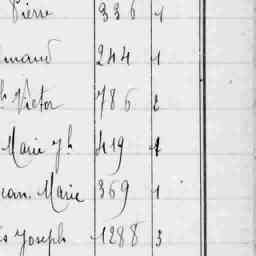 Pierre 336 1
mand 244 1
h Victor 786 2
Marie Jh 419 1
Jean. Marie 369 1
is Joseph 1288 3